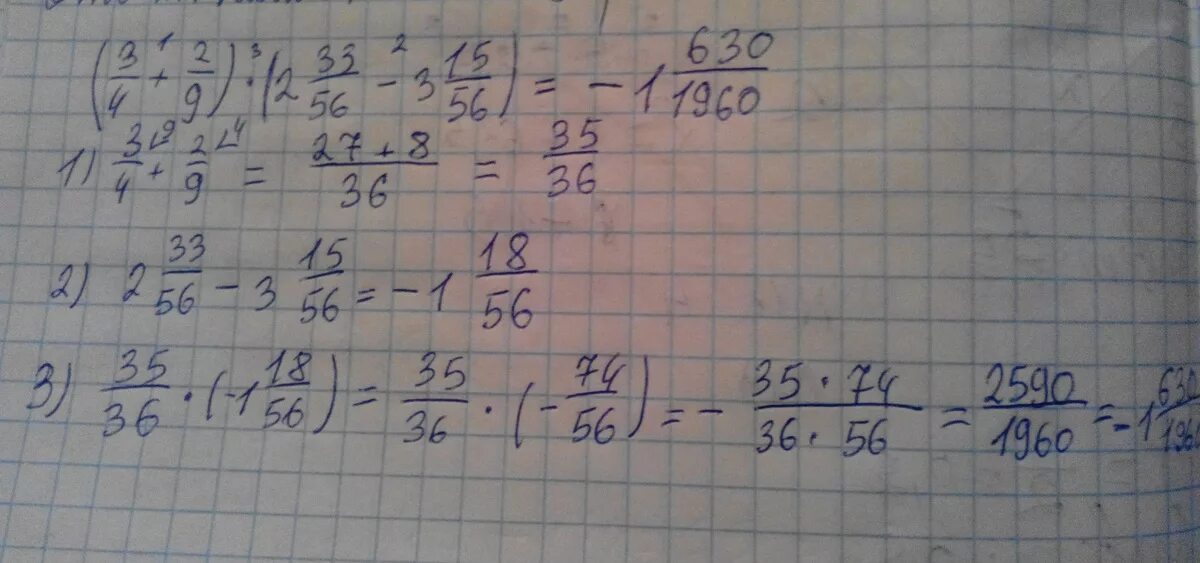 (3/4 + 2/9) · (2 33/56 - 3 15/56) = - 1 630/1960
1) 3/4 + 2/9 = 27 + 8/36 = 35/36
2) 2 33/56 - 3 15/56 = - 1 18/56
3) 35/36 · (-1 18/56) = 35/36 · (- 74/56) = - 35 · 74/36 · 56 = 2590/1960 = - 1 630/1960